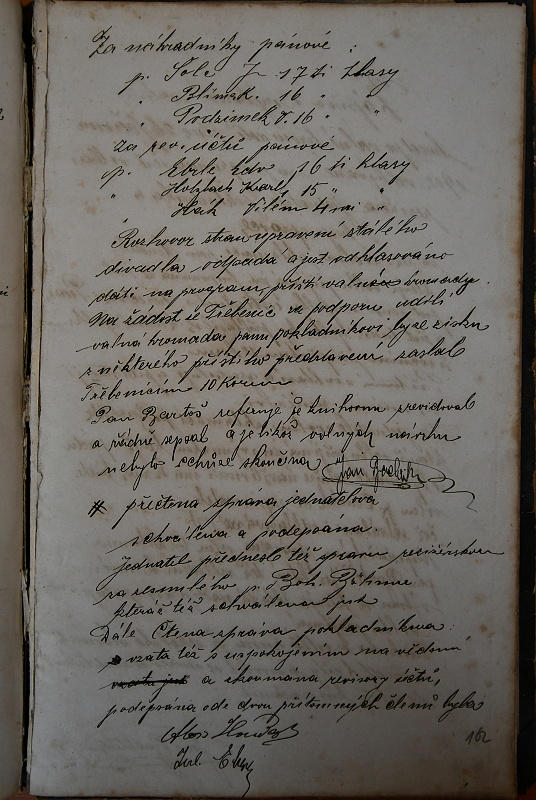 Za náhradníky pánové :
p. Sole J. 17ti hlasy
" Blimek. 16 " "
" Podzimek V. 16 " "
za rev. účtů pánové
p. Eberle Edv 16 ti hlasy
" Holzbach Karl, 15 " "
" Hák Vilém 4 mi "
Rozhovor stran upravení stálého
divadla odpadá a jest odhlasováno
dáti na program příští valné hromady.
Na žádost z Třebenic za podporu udělí
valná hromada panu pokladníkovi by ze zisku
z některého příštího představení zaslal
Třebenicím 10 Korun
Pan Bartoš referuje že knihovnu zrevidoval
a řádně sepsal a jelikož volných návrhu
nebylo schůze skončena Jan
# přečtena správa jednatelova
schválena a podepsána.
Jednatel přednesl též správu režisérskou
za zesnulého p. Boh. Böhma
kteráž též schválena jest
Dále čtena správa pokladníkova:
vzata též s uspokojením na vědomí
vzata jest a zkoumána revisory účtů,
podepsána ode dvou přítomných členů byla
Jul.
162